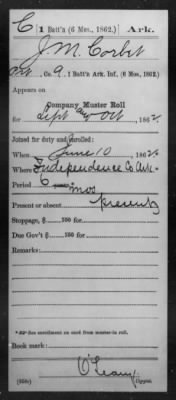 C | 1 Batt'n (6 Mos., 1862.) | Ark.
J. M. Corbit
Co. 9, 1 Batt'n Ark. Inf. (6 Mos., 1862.)
Appears on
Company Muster Roll
for Sept and Oct, 1862.
Joined for duty and enrolled:
When June 10, 1862.
Where Independence Co Ark.
Period 6 mos
Present or absent Present
Stoppage, $ 100 for
Due Gov't $ 100 for
Remarks:
*See enrollment on card from muster-in roll.
Book mark:
O'Leary
Copyist.